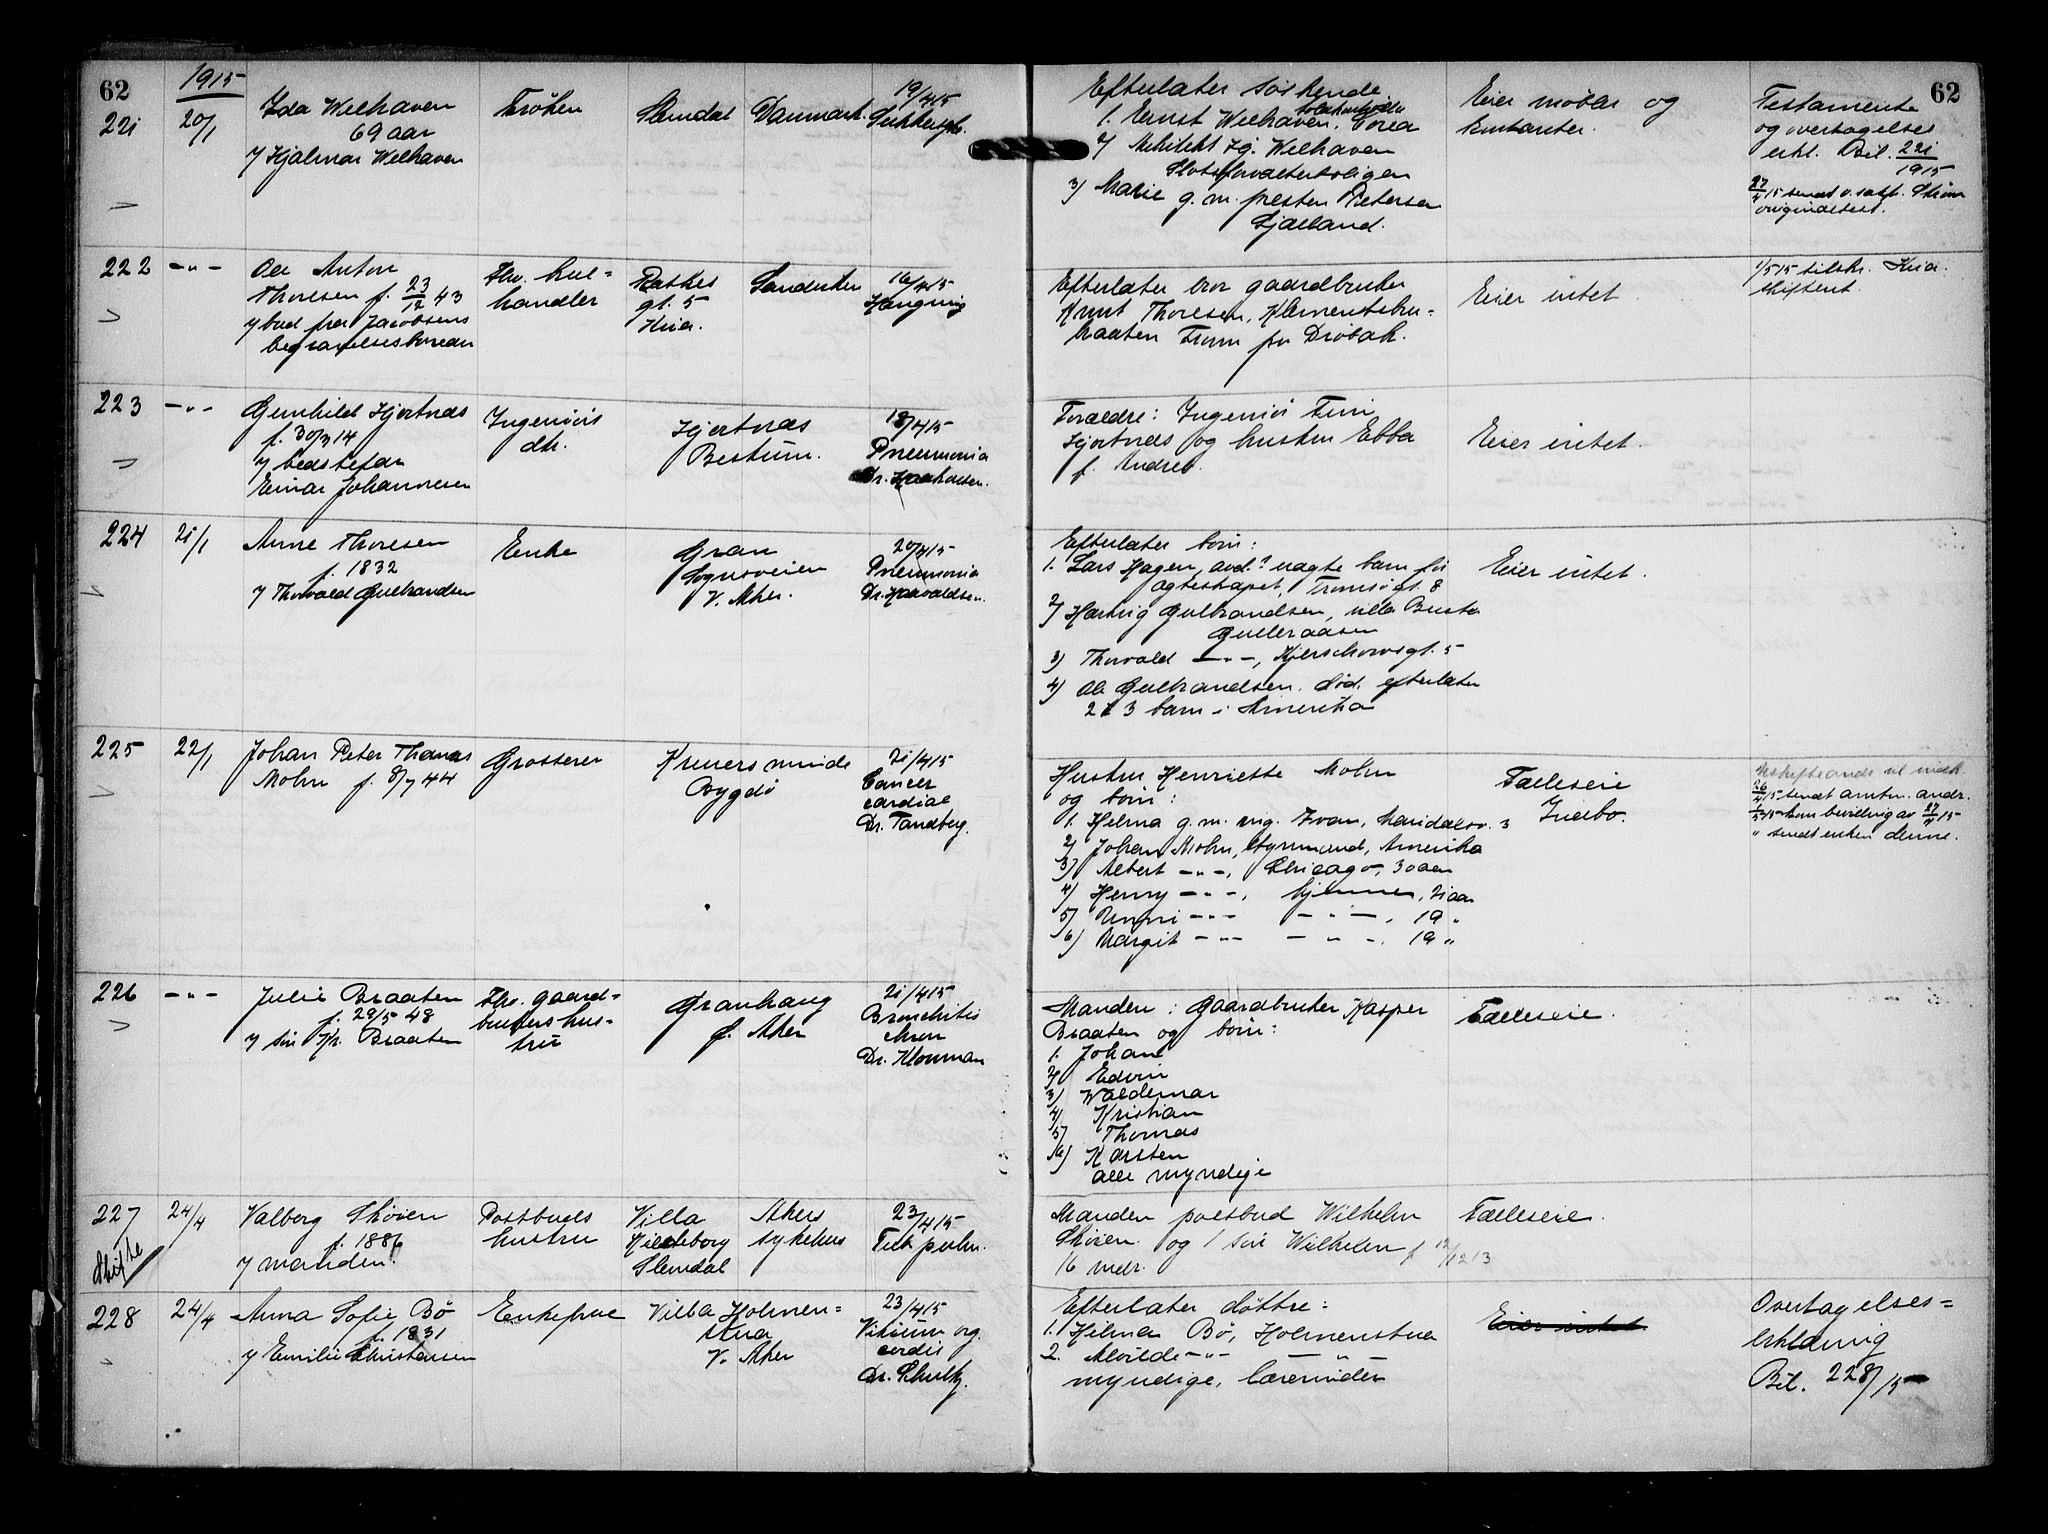 62
1915
221
20/1
Ida Welhaven
69 aar
v/ Hjalmar Welhaven
Frøken
Slemdal
Danmark.
19/4 15
Sukkersyke.
Efterlater søskende
1. Ernst Welhaven, Korea
2/ Arkitekt Hj. Welhaven
Slotsforvalterboligen
3) Marie g. m. presten Petersen
Sjælland.
Eier møbler og
kontanter.
62
Testamente
og overtagelses
erkl. Bil. 221/1915
27/4 15 sendt
originaltest.
222
-"-
Ole Anton
Thoresen f. 23/12 43
v/ bud fra Jacobsens
begravelsesbureau
Fhv. kul=
handler
gt. 5
Kria.
16/4 15
Hængning
Efterlater bror gaardbruker
Knut Thoresen,
braaten Frogn pr Drøbak.
Eier intet
1/5 15 tilskr. Kria.
skifteret.
223
-"-
Gunhild Hjortnæs
f. 30/3 14
v/ bedstefar
Einar Johannesen
Ingeniørs
dtr.
Hjortnæs
Bestum.
18/4 15
Pneumonia
Dr. Haakonsen.
Forældre: Ingeniør Finn
Hjortnæs og hustru Ebba
f. Andres.
Eier intet.
224
21/1
Anne Thoresen
f. 1832
v/ Thorvald Gulbrandsen
Enke
Gran
Sognsveien
V. Aker.
20/4 15
Pneumonia
Dr. Haavaldsen.
Efterlater børn:
1. Lars Hagen, avd.? uægte barn før
ægteskapet, Tromsøgt. 8
2/ Hartvig Gulbrandsen, villa Busta
Gulleraasen
3) Thorvald -"-, Kjerschowsgt. 5
4) Ole Gulbrandsen. død. efterlater
2 à 3 barn i Amerika
Eier intet.
225
22/1
Johan Peter Thomas
Mohn f. 8/7 44
Grosserer
Bygdø
21/4 15
Cancer
cardiae
Dr. Tandberg.
Hustru Henriette Mohn
og børn:
1. Helma g. m. ing. Ivan, Maridalsv. 3
2/ Johan Mohn, styrmand, Amerika
3) Albert -"-, Chicago, 30 aar
4) Henry -"-, hjemme, 21 aar
5) Unni -"- -"-, 19 "
6) Margit -"- -"-, 19 "
Fælleseie
Indbo.
26/4 15 sendt amtm. andr.
1/5 15 kom bevilling av 27/4 15
" sendt enken denne.
226
-"-
Julie Braaten
f. 29/5 48
v/ søn Kr. Braaten
Fhv. gaard=
brukers hus=
tru
Granhaug
Ø. Aker
21/4 15
Bronchitis
chron
Dr. Klouman
Manden: gaardbruker Kasper
Braaten og børn:
1. Johan
2/ Edvin
3) Waldemar
4) Kristian
5) Thomas
6) Karsten
alle myndige
Fælleseie.
227
Skifte
24/4
Valborg Skøien
f. 1886
v/ manden.
Postbuds
hustru
Villa
Hildeborg
Slemdal
Akers
sykehus
23/4 15
Tub. pulm.
Manden postbud Wilhelm
Skøien og 1 søn Wilhelm f 12/12 13
16 mdr.
Fælleseie.
228
24/4
Anna Sofie Bø
f. 1831
v/ Emilie Christensen
Enkefrue
Villa Holmen=
stua
V. Aker
23/4 15
Vitium org.
cordis
Dr. Schultz.
Efterlater døttre:
1. Hilma Bø, Holmenstua
2. Alvilde -"- -"-
myndige, lærerinder
Eier intet.
Overtagelses=
erklæring
Bil. 228/15